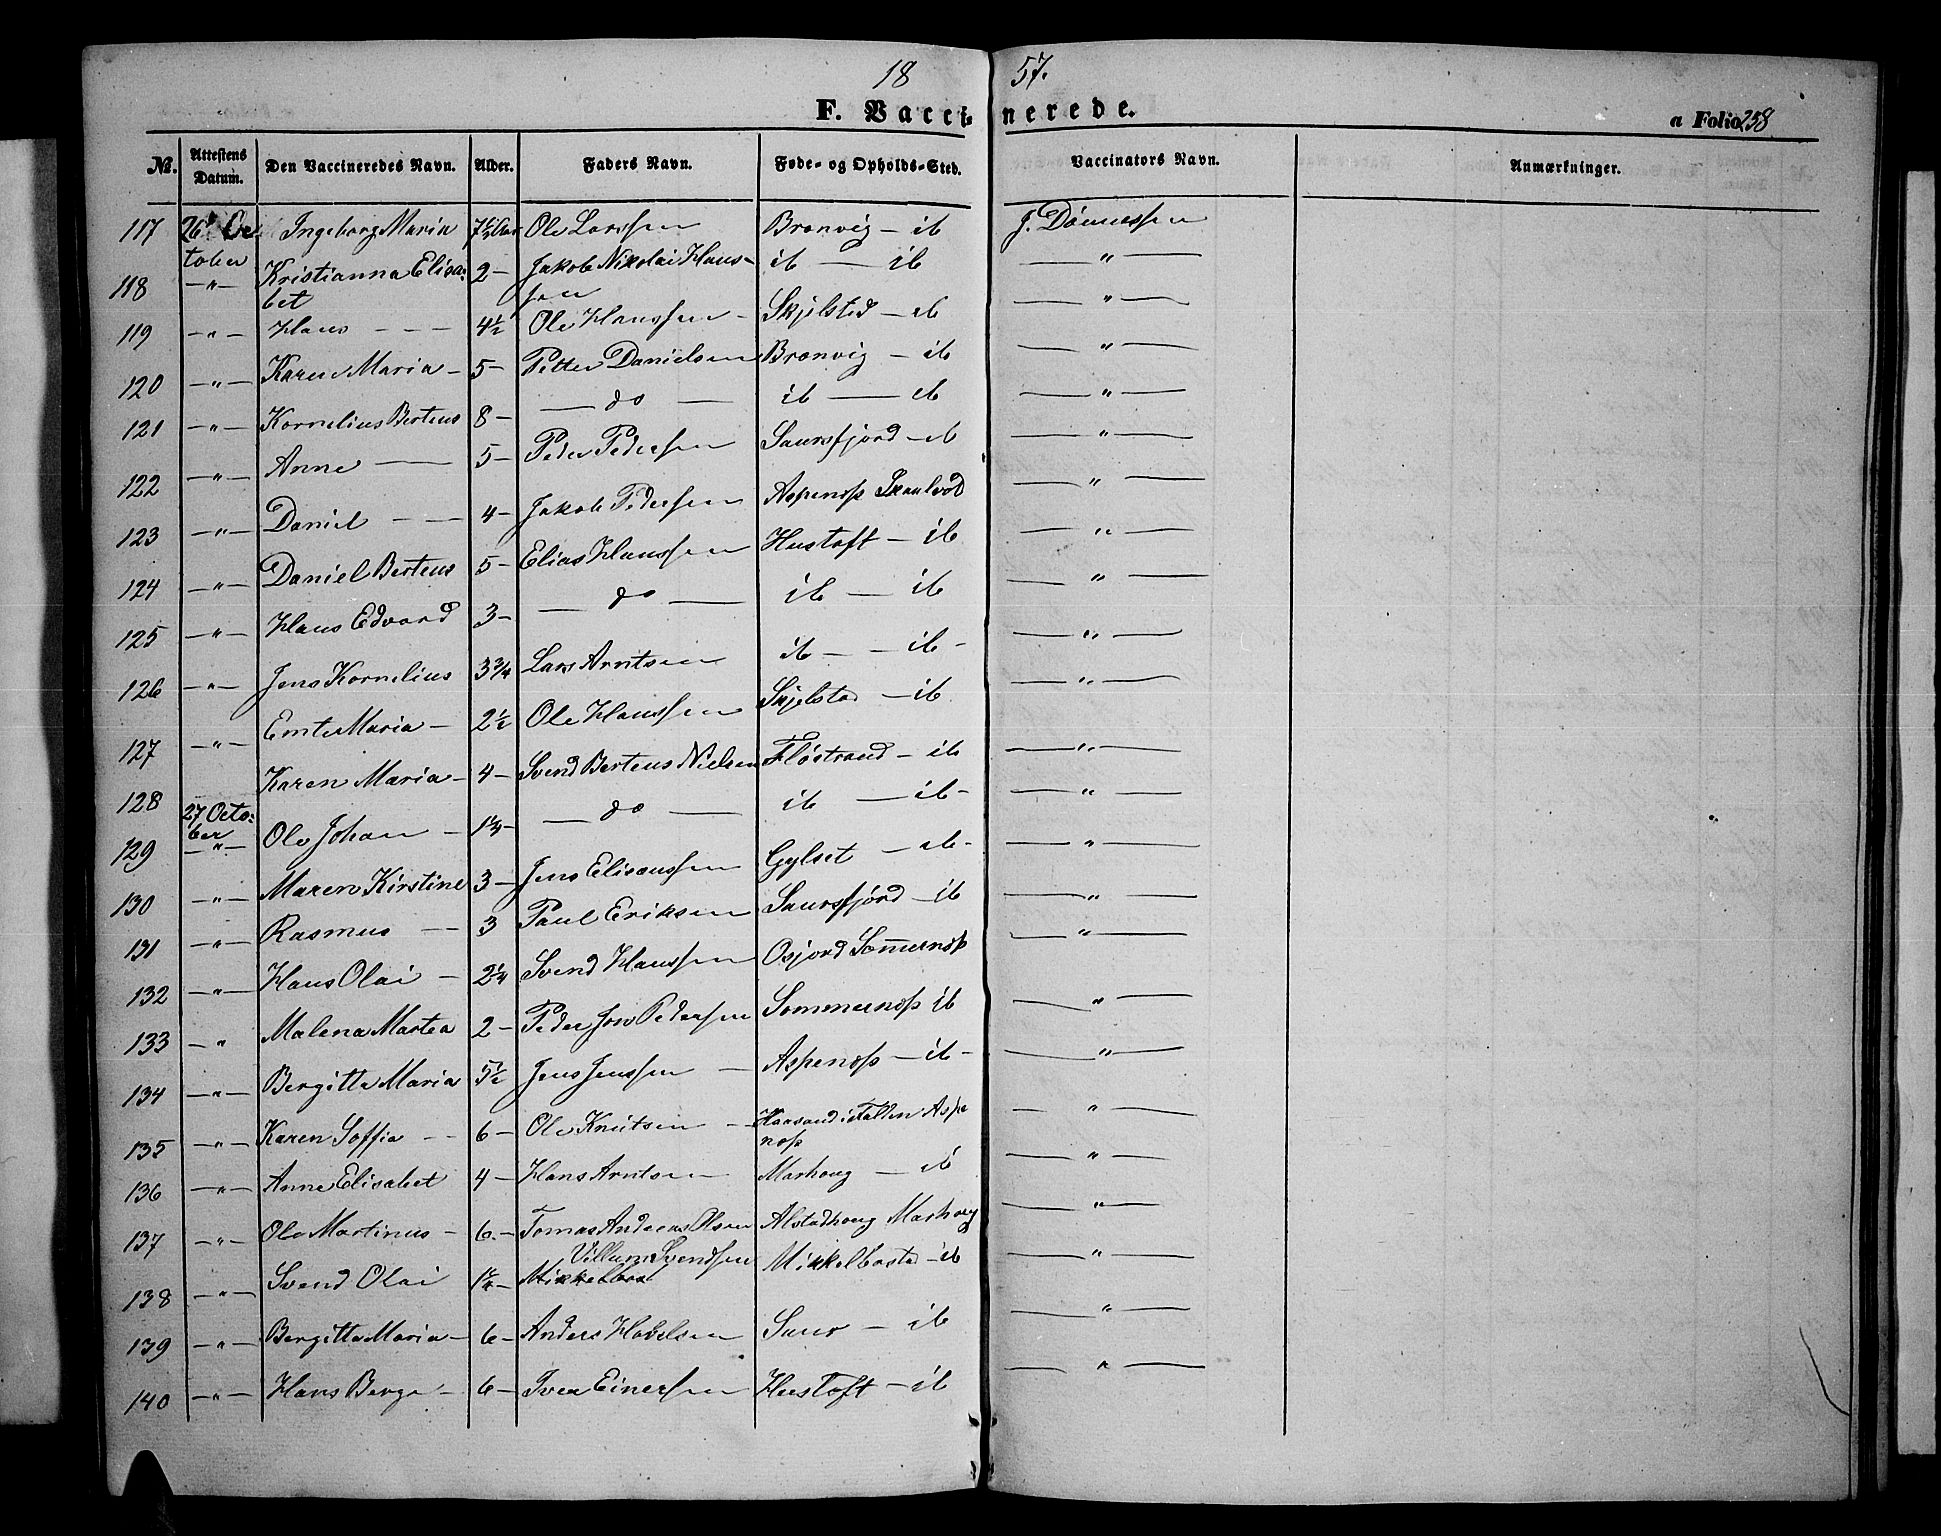 18 57.
F. Vaccinerede.
a Folio 258
No. Attestens Datum. Den Vaccineredes Navn. Alder. Faders Navn. Føde- og Opholds-Sted. Vaccinators Navn. Anmærkninger.
117 26 Oc Ingeborg Maria 7½ Ole Larssen Bronvig - ib J. Dönnessen
tober
118 -"- Kristianna Elisa- 2 - Jakob Nikolai Hans- ib - ib - " -
bet sen
119 -"- Hans - - - 4½ Ole Hanssen - Skjelstad - ib - " -
120 -"- Karen Maria - 5 - Petter Danielsen Bronvig - ib - " -
121 -"- Kornelius Berteus 8 - - do - ib - ib - " -
122 -"- Anne - 5 - Peder Pedersen Saursfjord - ib - " -
123 -"- Daniel - - 4 - Jakob Pedersen Aspenæs Skaalvold - " -
124 -"- Daniel Berteus 5 - Elias Hanssen Hustoft - ib - " -
125 -"- Hans Edvard 3 - - do - ib - ib - " -
126 -"- Jens Kornelius 3¾ Lars Arntsen ib - - ib - - " -
127 -"- Emte Maria - 2½ Ole Hanssen Skjelstad - ib - " -
128 Karen Maria - 4 - Svend Berteus Nielsen Flöstrand - ib - " -
27 Octo-
ber
129 -"- Ole Johan - 1¼ - - do - ib - ib - - " -
130 -"- Maren Kirstine 3 - Jens Elisæussen Gylset - ib - - " -
131 -"- Rasmus - - 3 Paul Eriksen Saursfjord - ib - " -
132 -"- Hans Olai - 2¼ Svend Hanssen Osjord Somernæs - " -
133 -" Malena Martea 2 - Peder Jon Pedersen Sommernæs ib - " -
134 -"- Bergitte Maria 5½ Jens Jenssen - Aspenæs - ib - - " -
135 -"- Karen Soffia - - 6 - Ole Knutsen - Haasand i Folden Aspe - " -
næs
136 -"- Anne Elisabet 4 - Hans Arntsen Marhaug - ib - " -
137 -"- Ole Martinus - 6 - Tomas Andreas Olsen Alstadhaug Marhaug - " -
Villum Svendsen
138 -"- Svend Olai 1¼ - Mikkelbos Mikkelbostad - ib - " -
139 -"- Bergitte Maria - 6 - Anders Habelsen Saur - ib - " -
140 -"- Hans Berge - 6 - Iver Einersen Hustoft - ib - " -